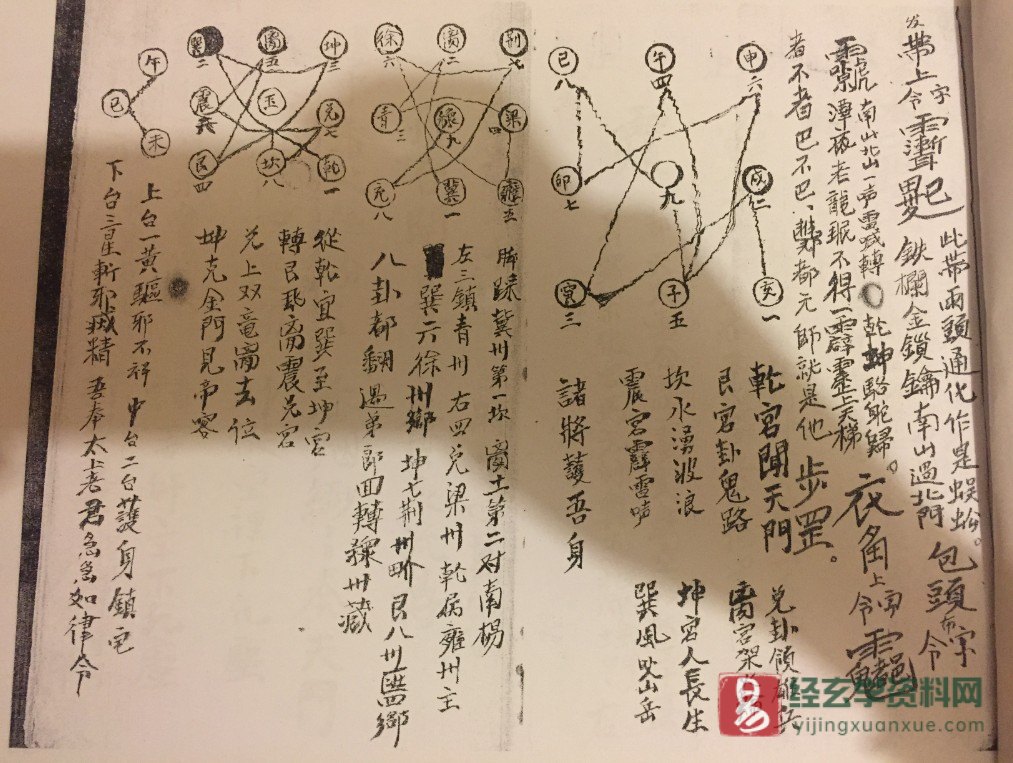 发帶上令字
此帶兩頭通化作是蜈蚣。包頭布令字
鉄欄金鎖鑰南山過北門。衣角上令字
南山北山一声雷喊轉 乾坤駱駝歸。
潭板老龍眠不得一霹靂上天梯
者不者巴不巴、 都元帥就是他 步罡。
乾宮開天門 兌卦領雄兵
艮宮卦鬼路 离宮架
坎水湧波浪 坤宮人長生
震宮霹雷声 巽風 山岳
諸將護吾身
申六
午四
巳八
戌二
九
卯七
亥一
子五
寅三
脚踩冀州第一坎 离土第二对南楊
左三鎮青州 右四兌梁州乾病雍州主
巽六徐州鄉 坤七荆州 艮八州 鄉
八卦都翻過弟郎回轉 州藏
荆七
二
徐六
梁四
九
青三
雍五
冀一
兖八
從乾宜巽至坤宮
轉艮 离震兌宮
兌上双竜离去位
坤克金門見帝客
坤三
离五
巽二
兌七
玉
震六
乾一
坎八
艮四
上台一黄驅邪不祥 中台二白護身鎮宅
下台三星斬邪滅精 吾奉太上老君急急如律令
午
巳
未
经玄学资料网
yijingxuanxue.com
易